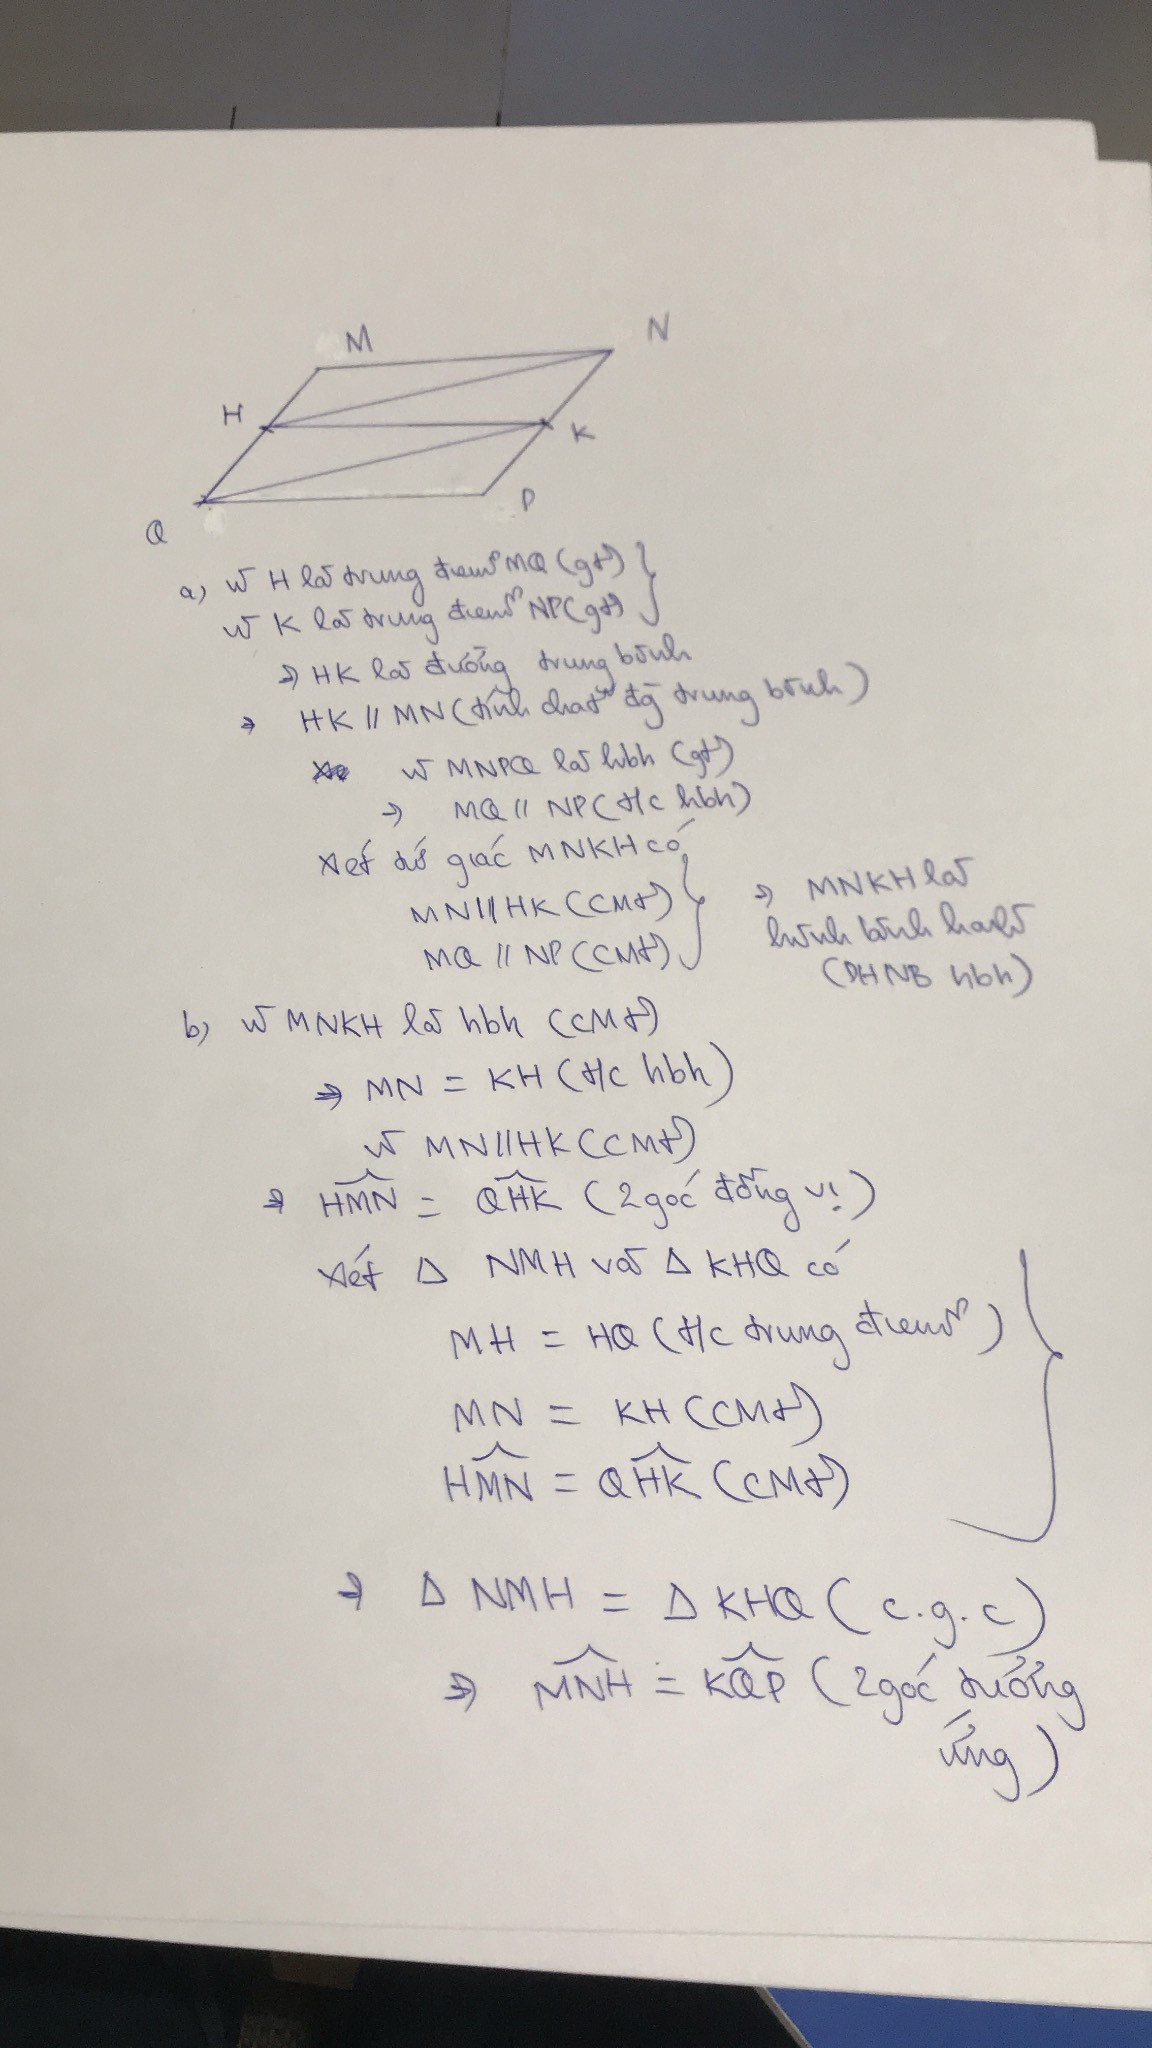 M
N
H
K
Q
P
a) Vì H là trung điểm MQ (gt)
Vì K là trung điểm NP (gt)
⇒ HK là đường trung bình
⇒ HK // MN (tính chất đg trung bình)
Vì MNPQ là hbh (gt)
⇒ MQ // NP (t/c hbh)
Xét tứ giác MNKH có
MN // HK (CMt)
MQ // NP (CMt)
⇒ MNKH là
hình bình hành
(DHNB hbh)
b) Vì MNKH là hbh (CMt)
⇒ MN = KH (t/c hbh)
Vì MN // HK (CMt)
⇒ HMN̂ = QHK̂ (2 góc đồng vị)
Xét Δ NMH và Δ KHQ có
MH = HQ (t/c trung điểm)
MN = KH (CMt)
HMN̂ = QHK̂ (CMt)
⇒ Δ NMH = Δ KHQ (c.g.c)
⇒ MNĤ = KQP̂ (2 góc tương
ứng)